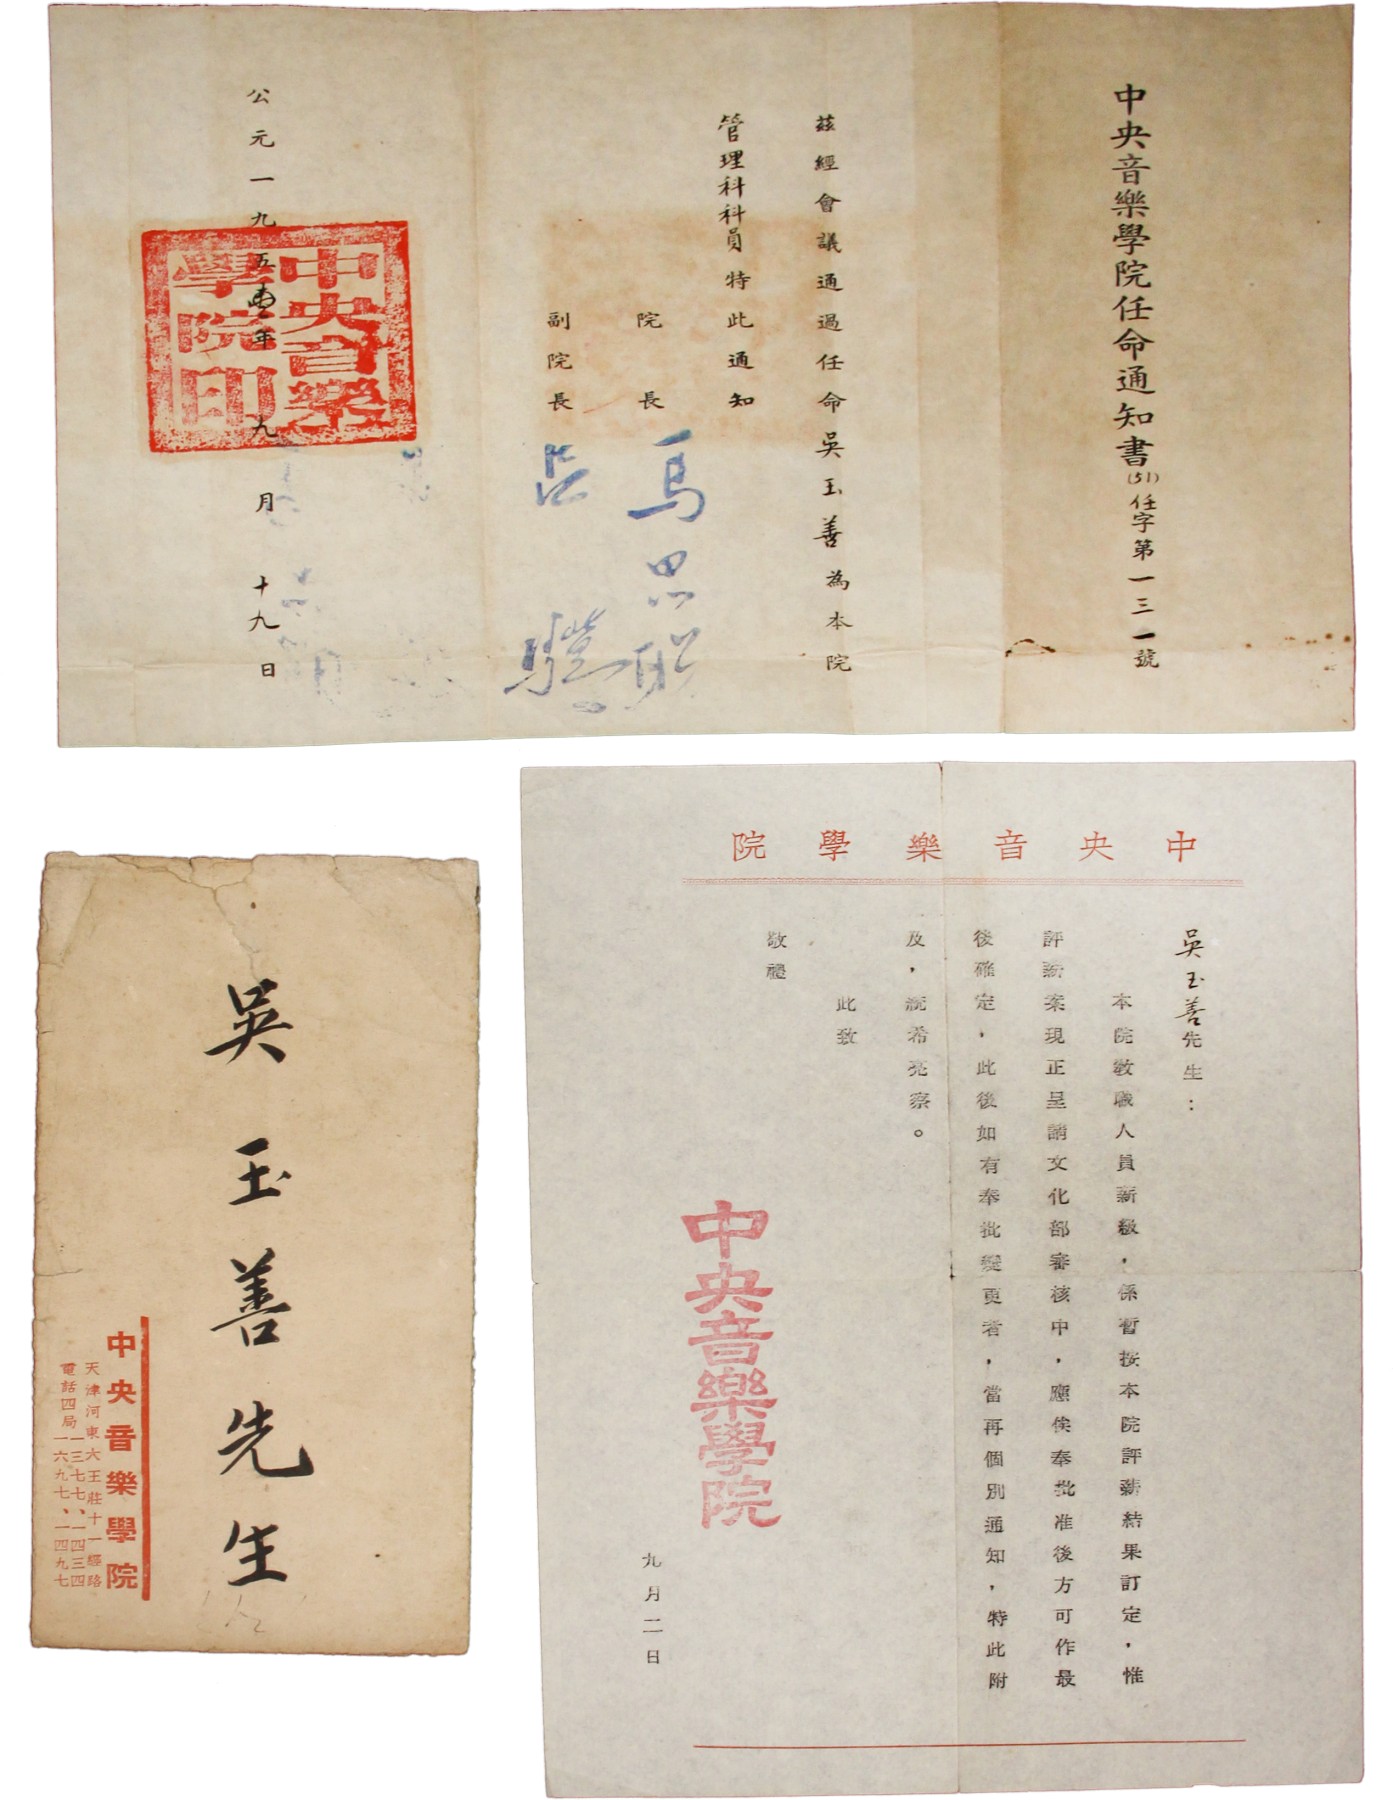 中央音樂學院任命通知書(51)任字第一三一號
茲經會議通過任命吳玉善為本院
管理科科員特此通知
院長馬思聰
副院長呂驥
公元一九五壹年九月十九日
中央音樂
學院印
中央音樂學院
吳玉善先生：
本院教職人員薪級，係暫按本院評薪結果訂定，惟
評薪案現正呈請文化部審核中，應俟奉批准後方可作最
後確定，此後如有奉批變更者，當再個別通知，特此附
及，統希亮察。
此致
敬禮
中央音樂學院
九月二日
吳玉善先生
中央音樂學院
天津河東大王莊十一經路
電話四局一三七七、一四三四
一六九七、一四九七